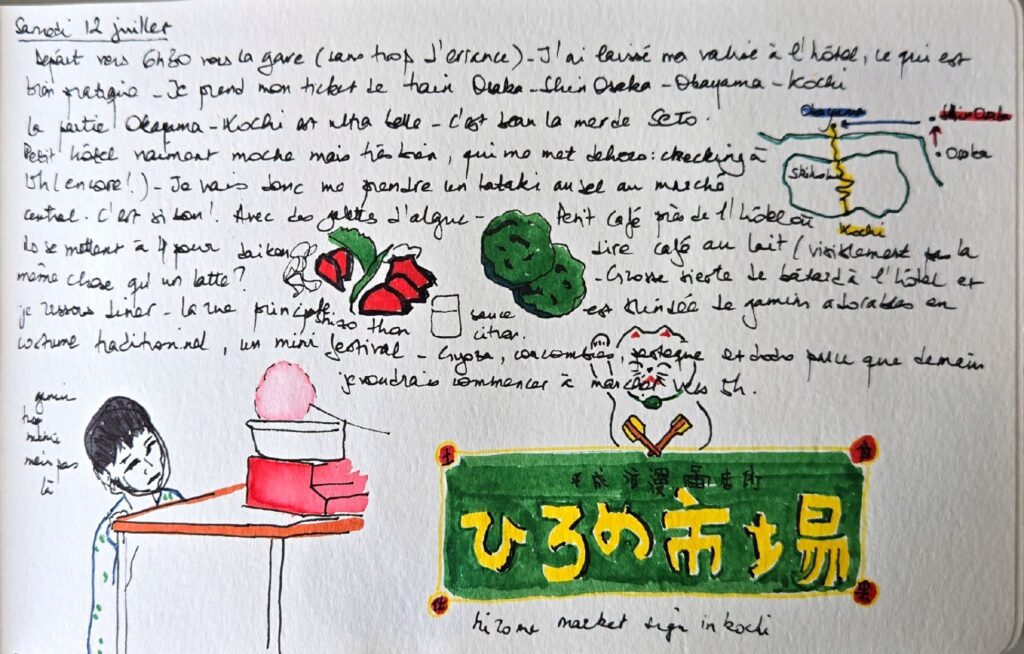 Samedi 12 juillet
Départ vers 6h30 vers la gare (sans trop d'errance) - J'ai laissé ma valise à l'hôtel, ce qui est
bien pratique - Je prend mon ticket de train Osaka - Shin Osaka - Okayama - Kochi
La partie Okayama - Kochi est ultra belle - c'est beau la mer de Seto.
Petit hôtel vraiment moche mais très bien, qui me met dehors : checking à
15h (encore!) - Je vais donc me prendre un tataki au sel au marché
central. C'est si bon! Avec des galettes d'algue -
Okayama
Shin Osaka
Osaka
Shikoku
Kochi
Petit café près de l'hôtel où
ils se mettent à 4 pour dire café au lait (visiblement pas la
même chose qu'un latte? - Grosse sieste de bâtard à l'hôtel et
je ressors diner - La rue principale est blindée de gamins adorables en
costume traditionnel, un mini festival - Gyoza, concombres, et dodo parce que demain
je voudrais commencer à marcher vers 5h.
daikon
shizo thon
sauce
citron.
gamin
trop
mimi
mais pas
là
土
食
佐
ひろめ市場
hirome market sign in kochi